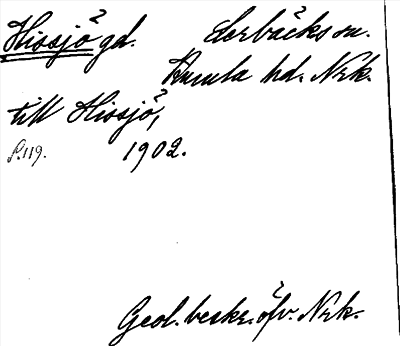 Hissjö gd. Lerbäcks sn.
Kumla hd. Nrk.
till Hissjö,
S.119. 1902.
Geol. beskr. öfv. Nrk.